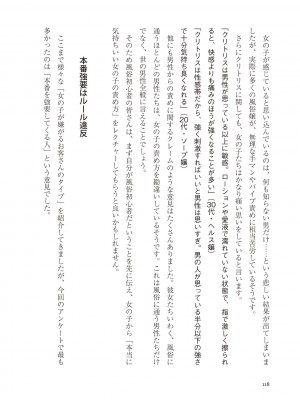 女の子が感じていると思い込んでいるのは、何も知らない男だけ！という悲しい結果が出てしまいま
したが、実際に多くの風俗嬢が、無理な手マンやバイブ責めに相当苦労しているそうです。
さらにクリトリスに関しても、女の子たちはかなり痛い思いをしていると言います。
「クリトリスは男性が思っている以上に敏感。ローションや愛液で濡れていない状態で、指で激しく擦られ
ると、快感よりも痛みのほうが強くなることが多い」（30代・ヘルス嬢）
「クリトリスは性感帯だから、強く刺激すればいいと男性は思いすぎ。男の人が思っている半分以下の強さ
で十分気持ち良くなれる」（20代・ソープ嬢）
他にも男性からの責めに関するクレームのような意見はたくさんありました。彼女たちいわく、風俗に
通うほとんどの男性は、女の子の気持ち良い責め方を勘違いしているそうです。これは風俗に通う男性たちだけ
でなく、世の男性全般に言えることかもしれません。
そのため風俗初心者の皆さんは、まず自分が風俗初心者だということを先に伝え、女の子から「本当に
気持ちいい女の子の責め方」をレクチャーしてもらうと良いかもしれません。
本番強要はルール違反
ここまで様々な「女の子が嫌がるお客さんのタイプ」を紹介してきましたが、今回のアンケートで最も
多かったのは「本番を強要してくる人」という意見でした。
118